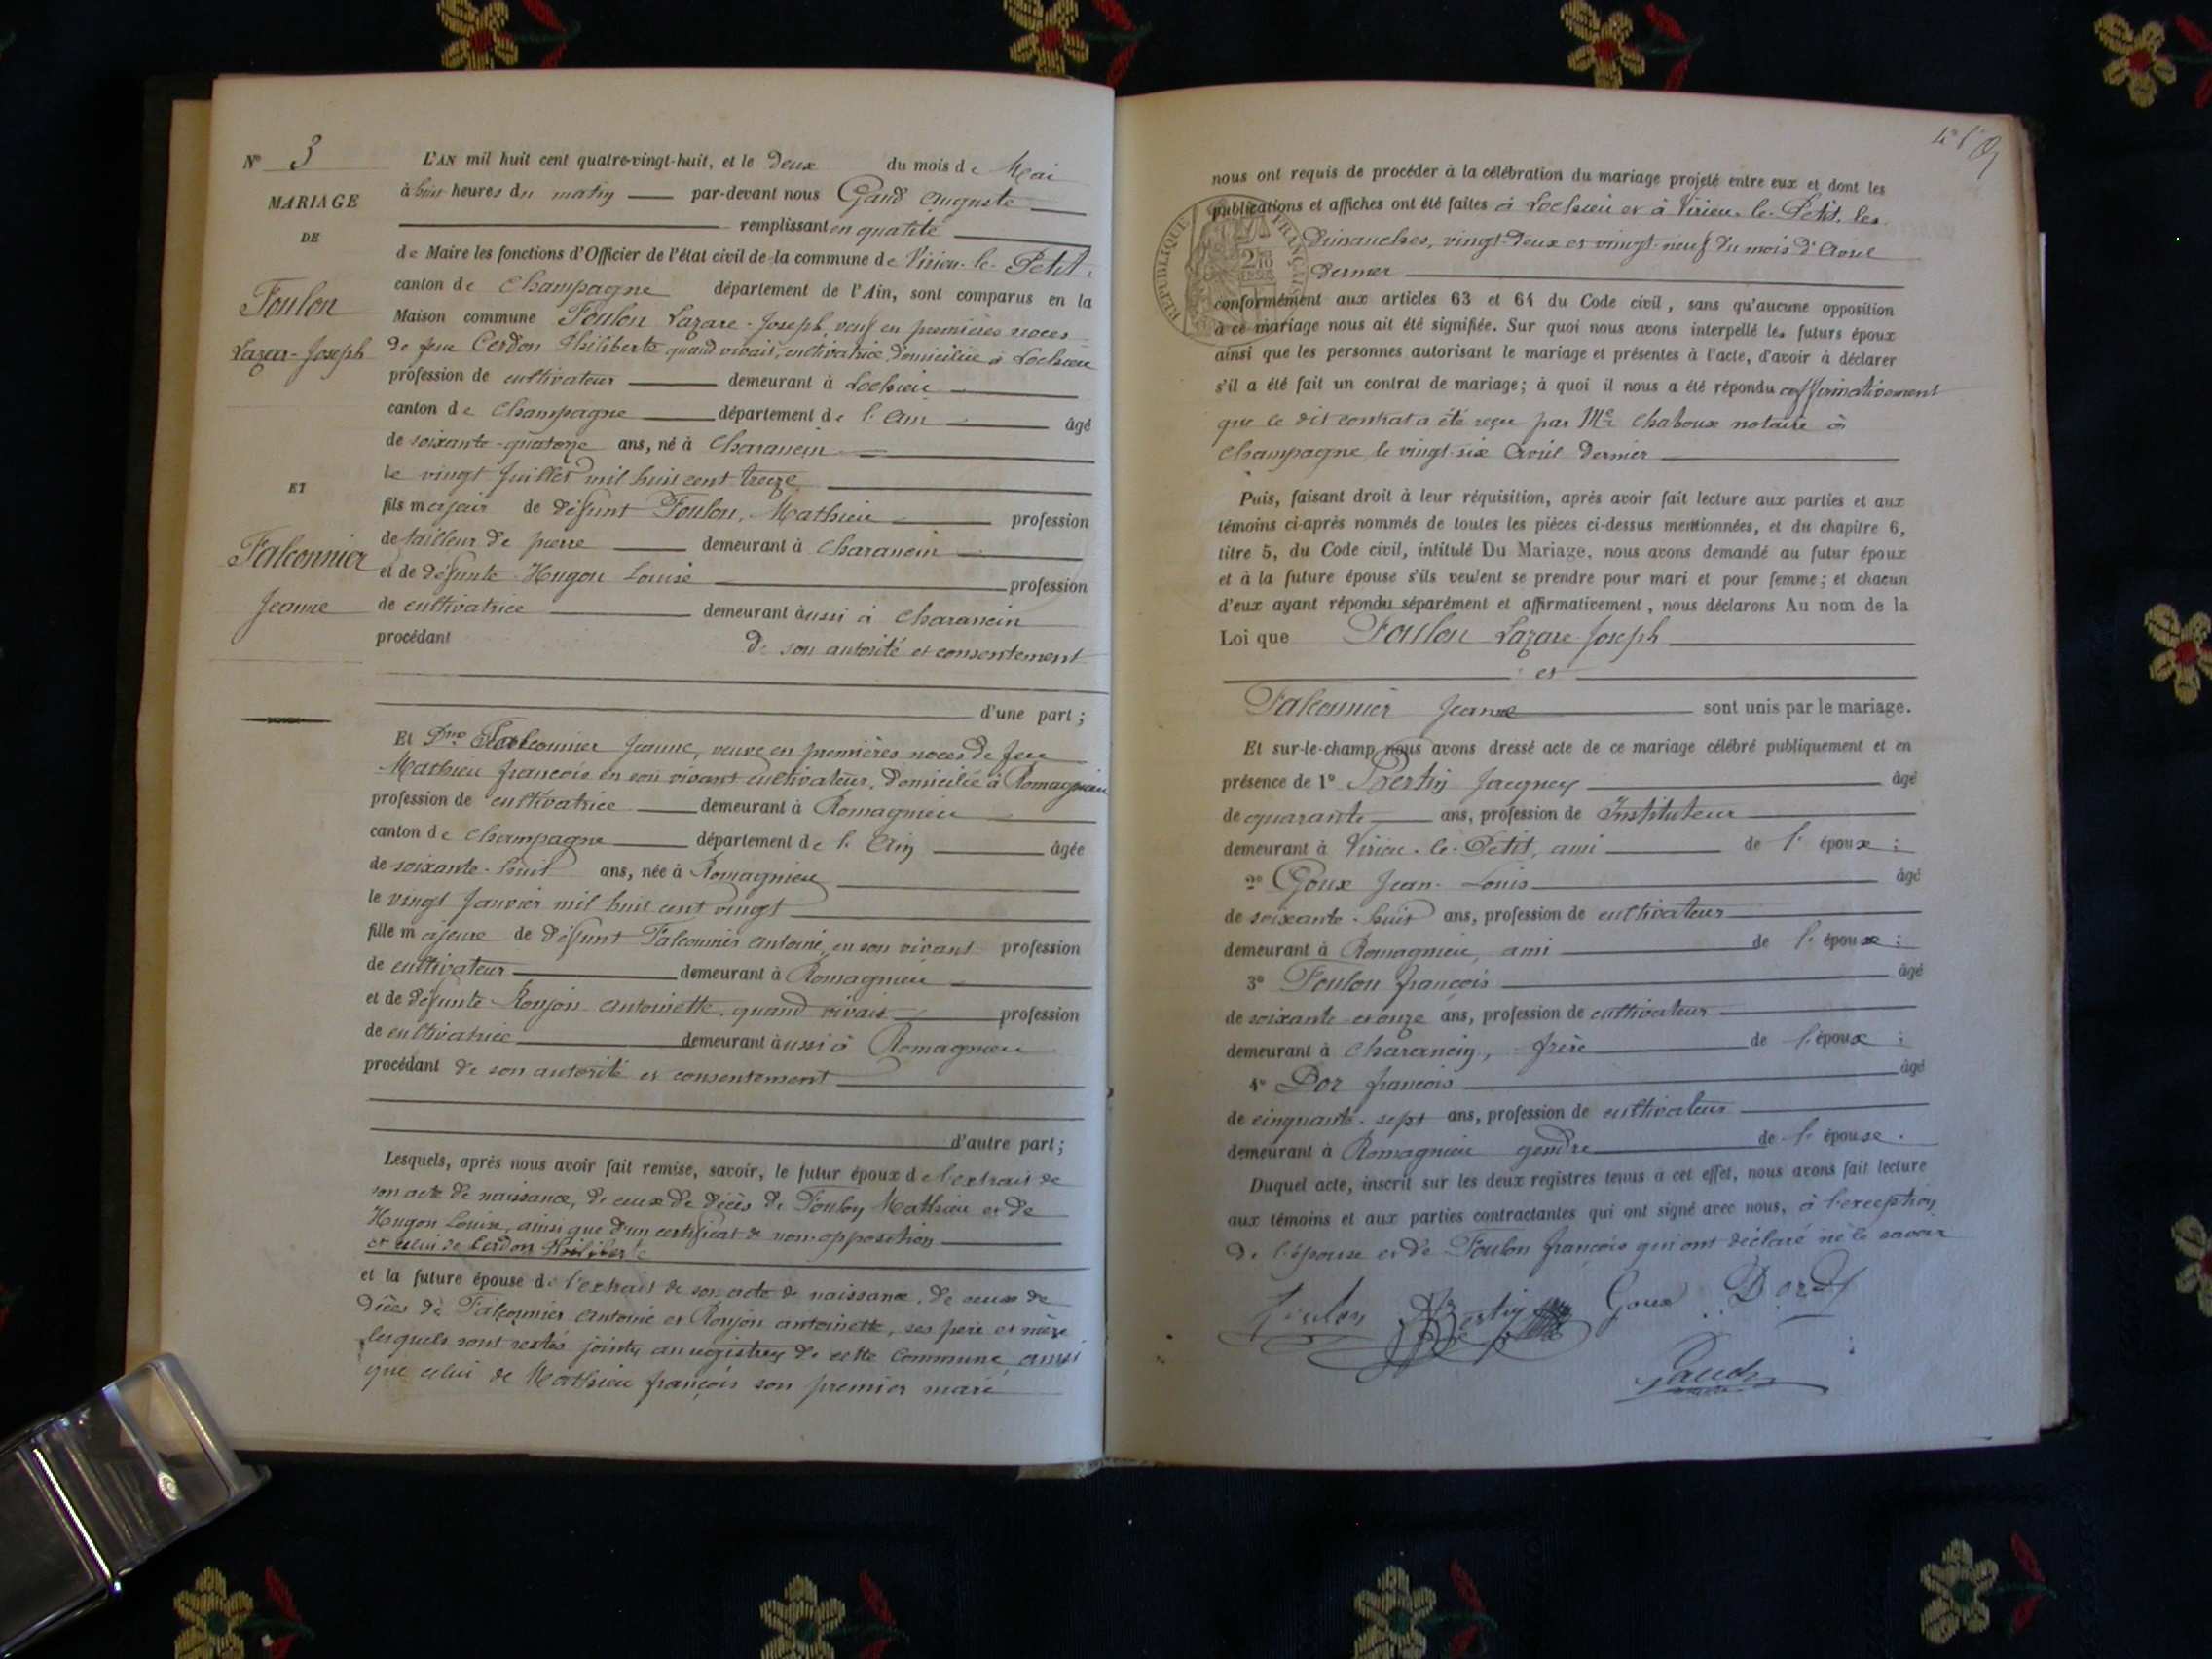 N° 3
MARIAGE
DE
Foulon
Lazare-Joseph
ET
Falconnier
Jeanne
L'AN mil huit cent quatre-vingt-huit, et le Deux du mois de Mai
à huit heures du matin par-devant nous Gaud Auguste
remplissant en qualité
de Maire les fonctions d'Officier de l'état civil de la commune de Virieu-le-Petit,
canton de Champagne département de l'Ain, sont comparus en la
Maison commune Foulon Lazare-Joseph, veuf en premières noces
de feue Cerdon Philiberte quand vivait, cultivatrice, domiciliée à Lochieu
profession de cultivateur demeurant à Lochieu
canton de Champagne département de l'Ain âgé
de soixante-quatorze ans, né à Charancin
le vingt Juillet mil huit cent treize
fils majeur de défunt Foulon, Mathieu profession
de tailleur de pierre demeurant à Charancin
et de défunte Hugon Louise profession
de cultivatrice demeurant aussi à Charancin
procédant de son autorité et consentement
d'une part;
Et Dme Falconnier Jeanne, veuve en premières noces de feu
Mathieu françois en son vivant cultivateur, domicilié à Romagnieu
profession de cultivatrice demeurant à Romagnieu
canton de Champagne département de l'Ain âgée
de soixante-huit ans, née à Romagnieu
le vingt Janvier mil huit cent vingt
fille majeure de défunt Falconnier Antoine, en son vivant profession
de cultivateur demeurant à Romagnieu
et de défunte Ronjon Antoinette, quand vivait profession
de cultivatrice demeurant aussi à Romagnieu
procédant de son autorité et consentement
d'autre part;
Lesquels, après nous avoir fait remise, savoir, le futur époux de l'extrait de
son acte de naissance, de ceux de décès de Foulon Mathieu et de
Hugon Louise, ainsi que d'un certificat de non opposition
et celui de Cerdon Philiberte
et la future épouse de l'extrait de son acte de naissance, de ceux de
décès de Falconnier Antoine et Ronjon antoinette, ses père et mère
lesquels sont restés joints au registres de cette Commune, ainsi
que celui de Mathieu françois son premier mari
nous ont requis de procéder à la célébration du mariage projeté entre eux et dont les
publications et affiches ont été faites à Lochieu et à Virieu-le-Petit, les
Dimanches, vingt-deux et vingt-neuf du mois d'Avril
dernier
RÉPUBLIQUE FRANÇAISE
conformément aux articles 63 et 64 du Code civil, sans qu'aucune opposition
à ce mariage nous ait été signifiée. Sur quoi nous avons interpellé les futurs époux
ainsi que les personnes autorisant le mariage et présentes à l'acte, d'avoir à déclarer
s'il a été fait un contrat de mariage; à quoi il nous a été répondu affirmativement
que le dit contrat a été reçu par Me Chaboux notaire à
Champagne le vingt-six Avril dernier
Puis, faisant droit à leur réquisition, après avoir fait lecture aux parties et aux
témoins ci-après nommés de toutes les pièces ci-dessus mentionnées, et du chapitre 6,
titre 5, du Code civil, intitulé Du Mariage, nous avons demandé au futur époux
et à la future épouse s'ils veulent se prendre pour mari et pour femme; et chacun
d'eux ayant répondu séparément et affirmativement, nous déclarons Au nom de la
Loi que Foulon Lazare Joseph
et
Falconnier Jeanne sont unis par le mariage.
Et sur-le-champ nous avons dressé acte de ce mariage célébré publiquement et en
présence de 1° Bertin Jacques âgé
de quarante ans, profession de Instituteur
demeurant à Virieu-le-Petit, ami de l'époux;
2° Goux Jean-Louis âgé
de soixante-huit ans, profession de cultivateur
demeurant à Romagnieu, ami de l'époux;
3° Foulon françois âgé
de soixante et onze ans, profession de cultivateur
demeurant à Charancin, frère de l'époux;
4° Dor françois âgé
de cinquante-sept ans, profession de cultivateur
demeurant à Romagnieu gendre de l'épouse.
Duquel acte, inscrit sur les deux registres tenus à cet effet, nous avons fait lecture
aux témoins et aux parties contractantes qui ont signé avec nous, à l'exception
de l'épouse et de Foulon françois qui ont déclaré ne le savoir
Foulon Bertin Goux Dor
Gaud